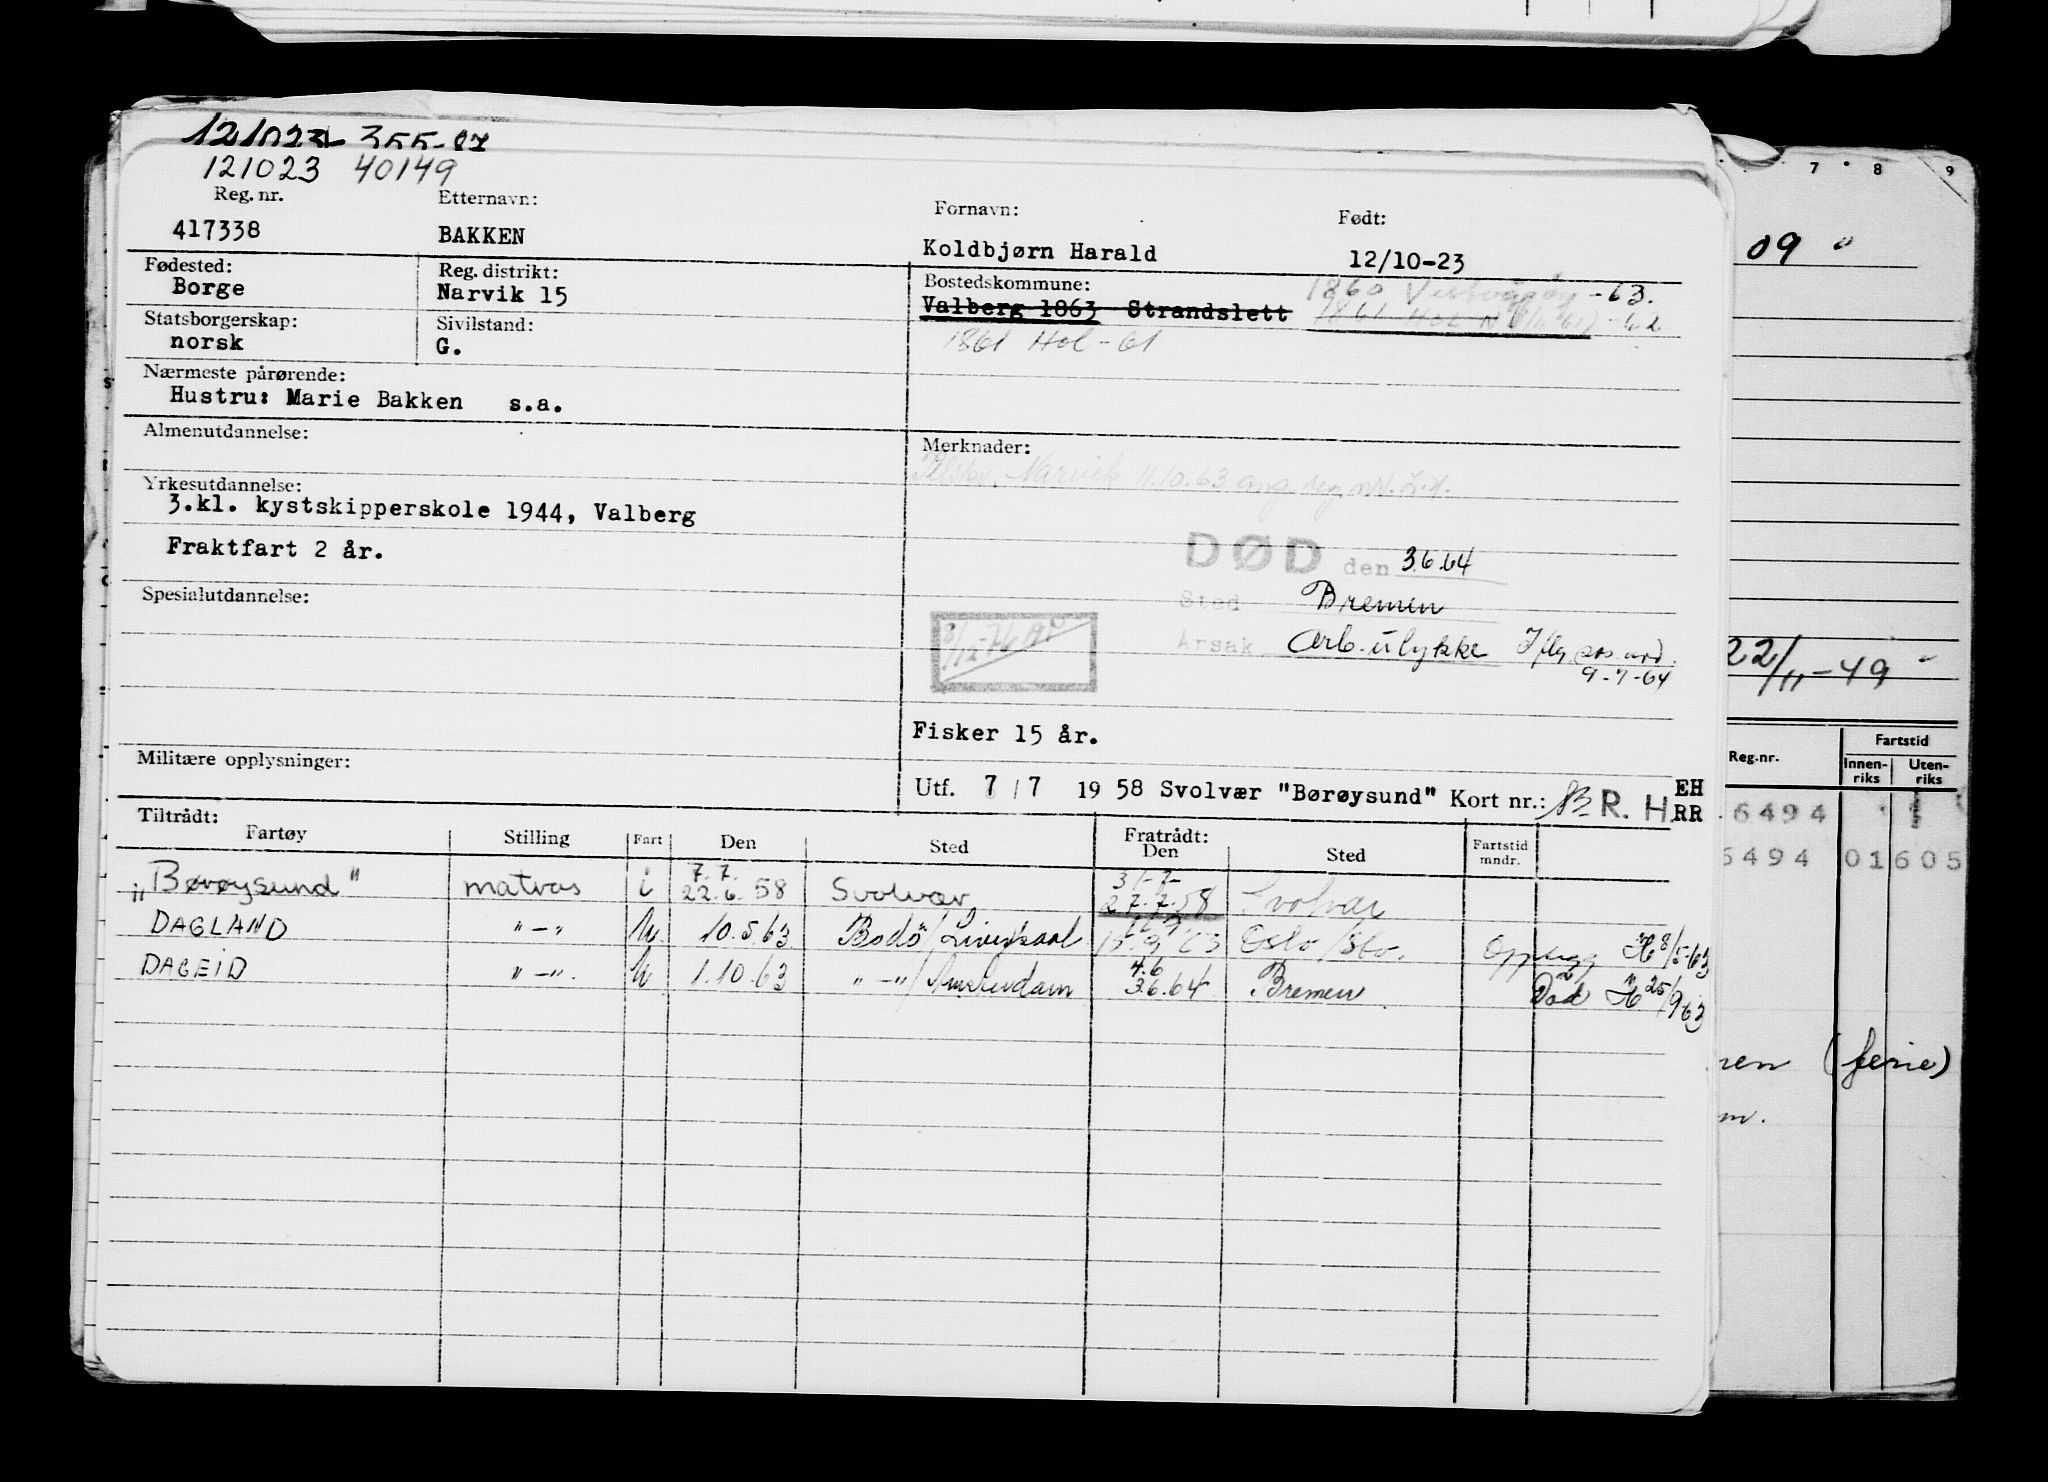 121023 355-87
121023 40149
Reg. nr. Etternavn: Fornavn: Født:
417338 BAKKEN Koldbjørn Harald 12/10-23
Fødested: Reg. distrikt: Bostedskommune: 1860 Vestvågøy -63.
Borge Narvik 15 Valberg 1863 Strandslett 1861 Hol
Statsborgerskap: Sivilstand: 1861 Hol - 61
norsk G.
Nærmeste pårørende:
Hustru: Marie Bakken s.a.
Almenutdannelse: Merknader:
Narvik 11.10.63 ang.
Yrkesutdannelse:
3.kl. kystskipperskole 1944, Valberg
Fraktfart 2 år.
DØD den 3.6.64
Spesialutdannelse:
Sted Bremen
Årsak Arb.ulykke Iflg.
9-7-64
Fisker 15 år.
Militære opplysninger:
Utf. 7/7 1958 Svolvær "Børøysund" Kort nr.: R. H. EH
RR
Tiltrådt: Fratrådt:
Fartøy Stilling Fart Den Sted Den Sted Fartstid mndr.
7.7. 31-7-
"Børøysund" matros i 22.6.58 Svolvær 27.7.58 Svolvær
DAGLAND "-" U 10.5.63 Bodø/Liverpool 63 Oslo/ Oppsagt H 8/5-63
4.6
DAGEID "-". U 1.10.63 "-"/Amsterdam 3.6.64 Bremen Død H 25/9 63
7 8 9
09 "
22/11-49 "
Reg.nr. Fartstid
Innen-riks Uten-riks
6494
6494 01605
ren (ferie)
m.